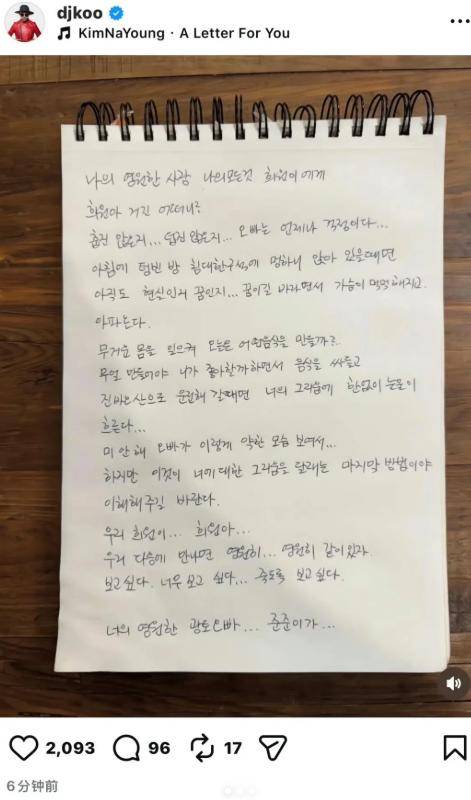 djkoo
KimNaYoung · A Letter For You
나의 영원한 사랑 나의모든것 희원이에게
희원아 거긴 어떠니?
춥진 않은지... 덥진 않은지... 오빠는 언제나 걱정이다...
아침에 텅빈 방 침대한구석에 멍하니 앉아 있을때면
아직도 현실인지 꿈인지... 꿈이길 바라면서 가슴이 먹먹해지고
아파온다.
무거운 몸을 일으켜 오늘은 어떤음식을 만들까?
무얼 만들어야 니가 좋아할까하면서 음식을 싸들고
진바오산으로 운전해 갈때면 너의 그리움에 한없이 눈물이
흐른다...
미안해 오빠가 이렇게 약한 모습 보여서...
하지만 이것이 너에대한 그리움을 달래는 마지막 방법이야
이해해주길 바란다.
우리 희원이... 희원아...
우리 다음에 만나면 영원히... 영원히 같이있자.
보고싶다. 너무 보고 싶다... 죽도록 보고싶다.
너의 영원한 광토오빠... 준준이가...
2,093 96 17
6分钟前